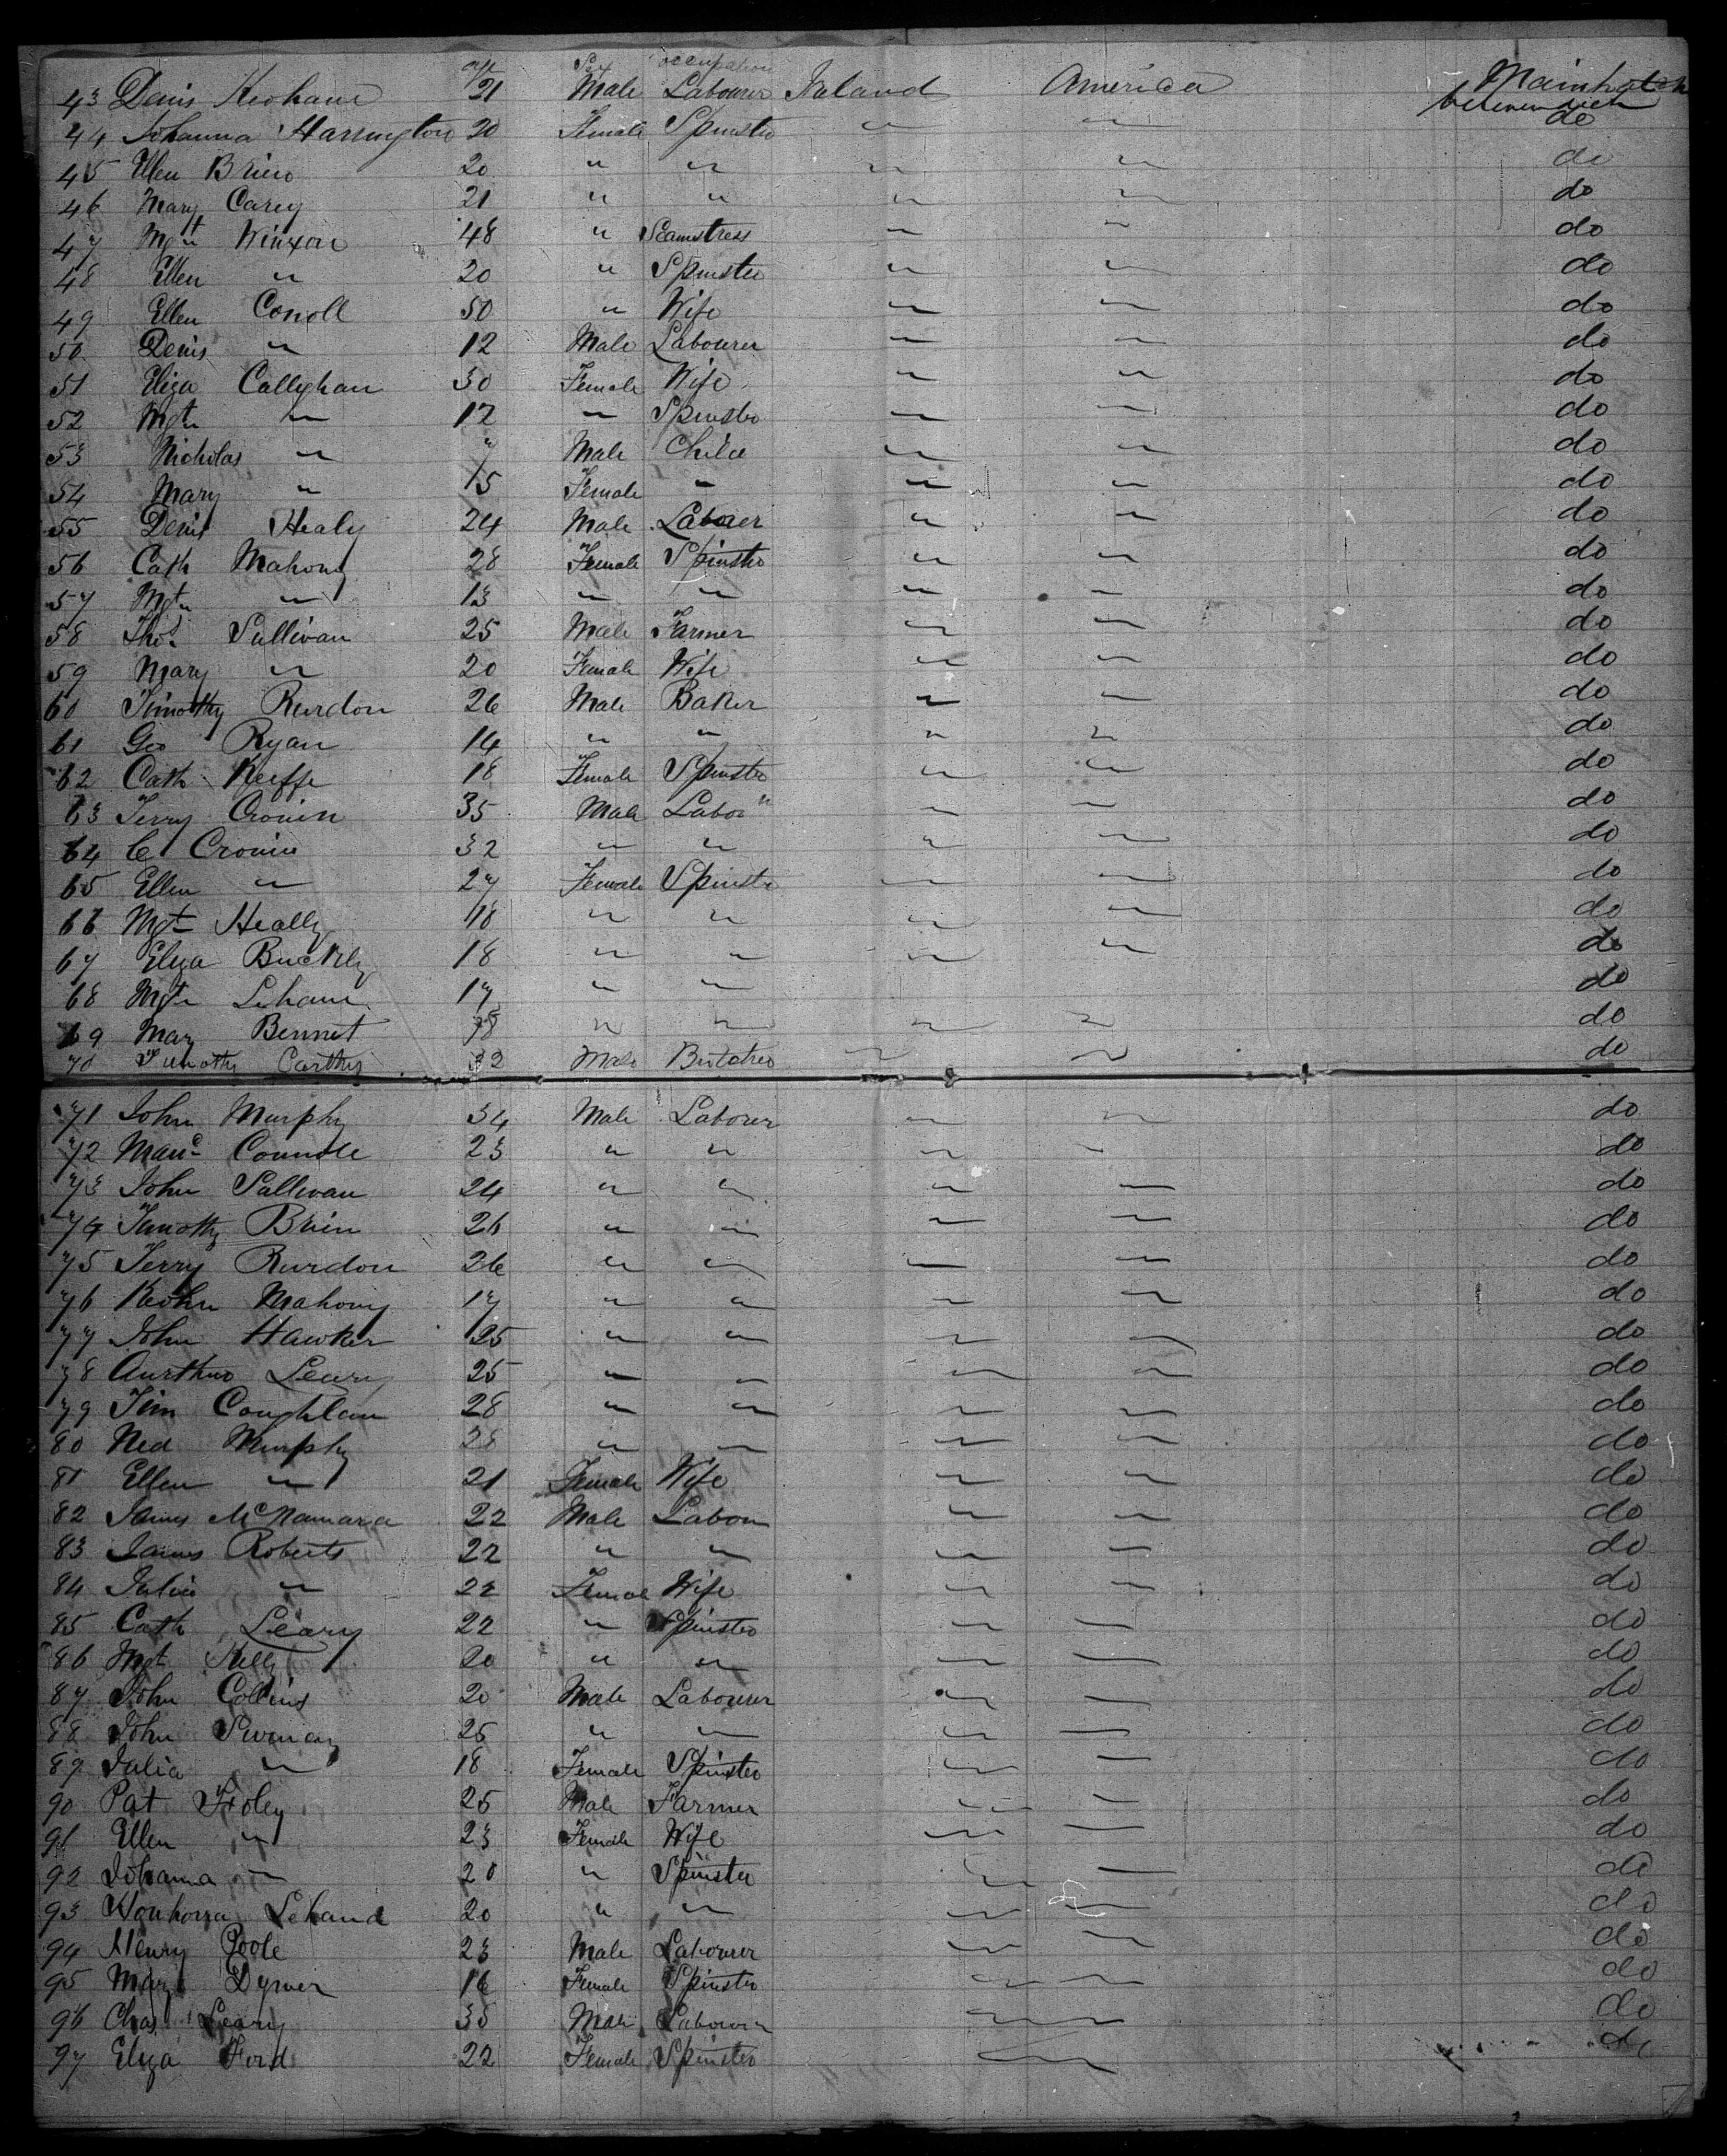 age Sex occupation
43 Denis Keohane 21 Male Labourer Ireland America Mainhatch
between deck
44 Johanna Harrington 20 Female Spinster " " do
45 Ellen Brien 20 " " " " do
46 Mary Carey 21 " " " " do
47 Mgt Winxon 48 " Seamstress " " do
48 Ellen " 20 " Spinster " " do
49 Ellen Conoll 50 " Wife " " do
50 Denis " 12 Male Labourer " " do
51 Eliza Callyhan 30 Female Wife " " do
52 Mgt " 12 " Spinster " " do
53 Nicholas " 7 Male Child " " do
54 Mary " 15 Female " " " do
55 Denis Healy 24 Male Laborer " " do
56 Cath Mahony 28 Female Spinster " " do
57 Mgt " 13 " " " " do
58 Thos Sullivan 25 Male Farmer " " do
59 Mary " 20 Female Wife " " do
60 Timothy Rurdon 26 Male Baker " " do
61 Geo Ryan 14 " " " " do
62 Cath Keeffe 18 Female Spinster " " do
63 Jerry Cronin 35 Male Labor " " " do
64 C Cronin 32 " " " " do
65 Ellen " 27 Female Spinster " " do
66 Mgt Heally 18 " " " " do
67 Eliza Buckly 18 " " " " do
68 Mgt Lehane 17 " " do
69 Mary Bennet 18 " " " " do
70 Timothy Carthy 32 Male Butcher " " do
71 John Murphy 34 Male Laborer " " do
72 Maue Connole 23 " " " " do
73 John Sullivan 24 " " " " do
74 Timothy Brien 26 " " " " do
75 Jerry Rurdon 26 " " " " do
76 Keohn Mahony 17 " " " " do
77 John Hawker 25 " " " " do
78 Aurthur Leary 25 " " " " do
79 Jim Coughlan 28 " " " " do
80 Ned Murphy 28 " " " " do
81 Ellen " 21 Female Wife " " do
82 James McNamara 22 Male Labour " " do
83 James Roberts 22 " " " " do
84 Julia " 22 Female Wife " " do
85 Cath Leary 22 " Spinster " " do
86 Mgt Kelly 20 " " " " do
87 John Collins 20 Male Labourer " " do
88 John Swiney 26 " " " " do
89 Julia " 18 Female Spinster " " do
90 Pat Foley 25 Male Farmer " " do
91 Ellen " 23 Female Wife " " do
92 Johanna " 20 " Spinster " " do
93 Honhorra Lehand 20 " " " " do
94 Henry Poole 23 Male Labourer " " do
95 Mary Dywer 16 Female Spinster " " do
96 Chas Leary 35 Male Labourer " " do
97 Eliza Ford 22 Female Spinster " " do